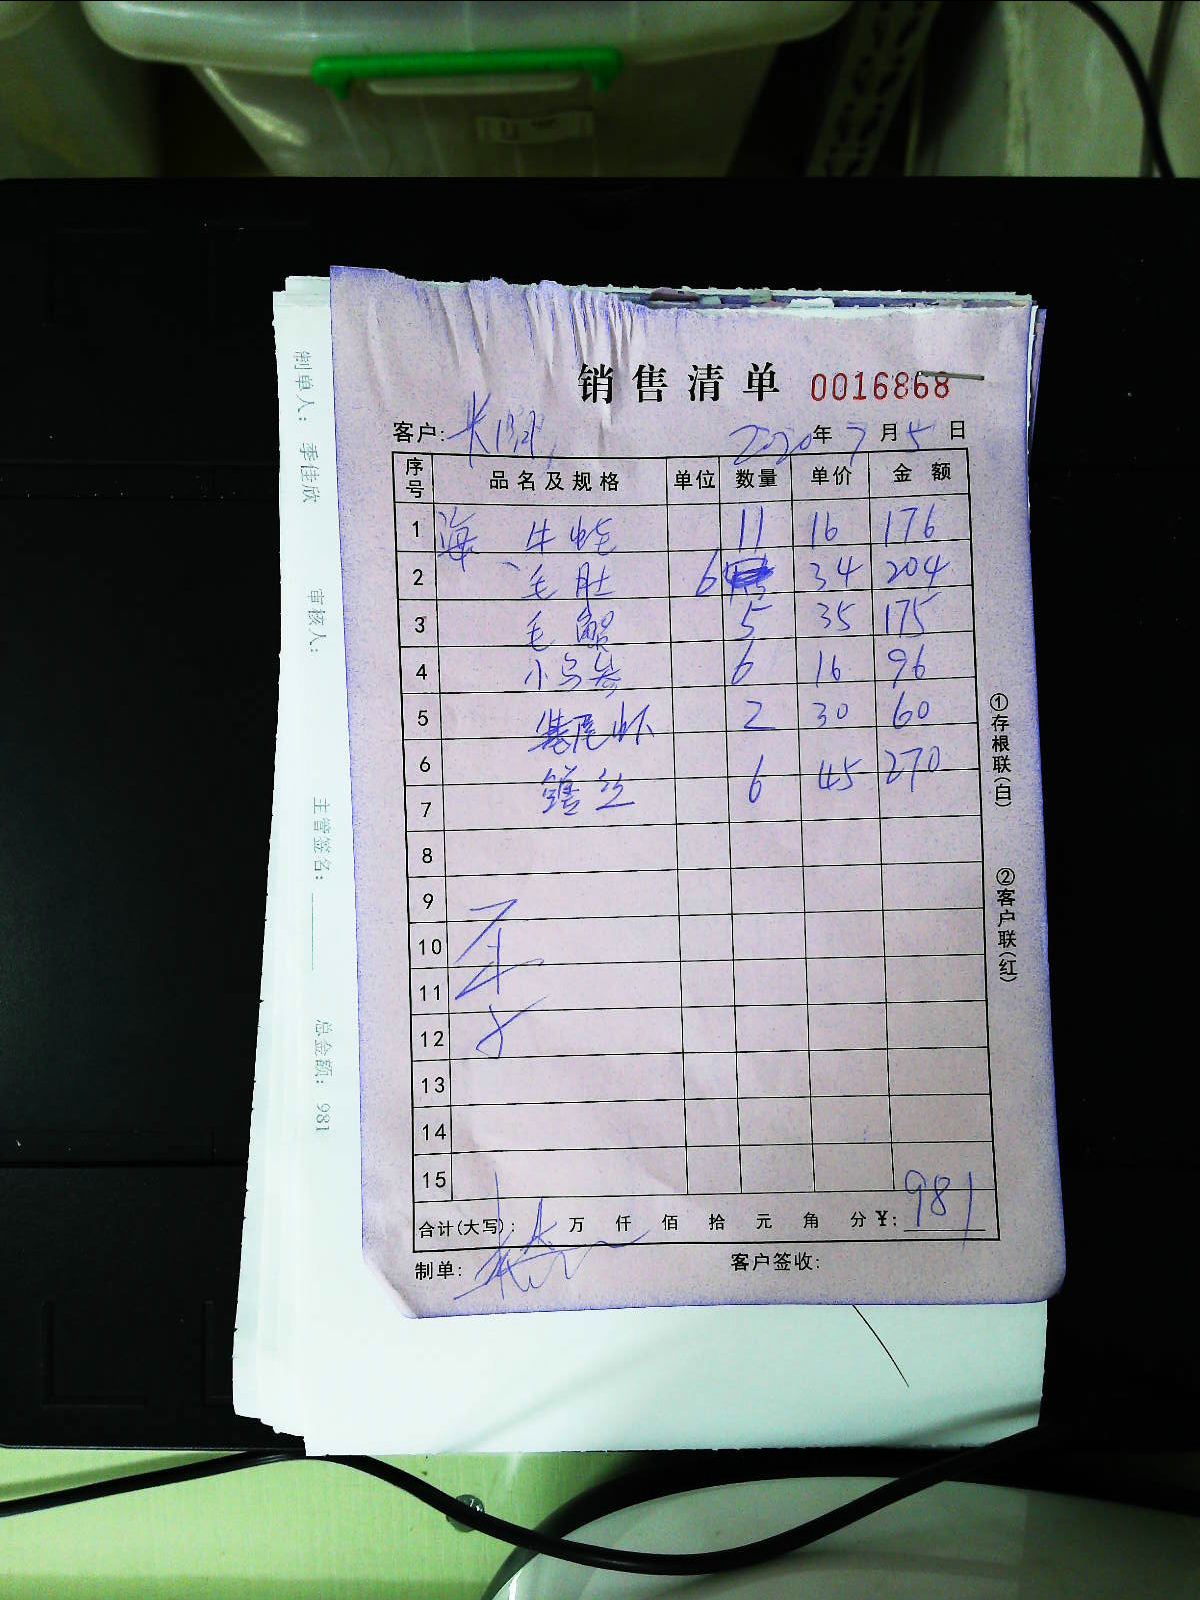 销售清单 0016868
客户: 2020年7月5日
序号 品名及规格 单位 数量 单价 金额
1 海 牛蛙 11 16 176
2 毛肚 6 34 204
3 毛蟹 5 35 175
4 小乌 6 16 96
5 尾虾 2 30 60
6 鳝丝 6 45 270
7
8
9
10
11
12
13
14
15
合计(大写): 万 仟 佰 拾 元 角 分 ¥: 981
制单: 客户签收:
①存根联(白)
②客户联(红)
制单人: 季佳欣 审核人: 主管签名: 总金额: 981